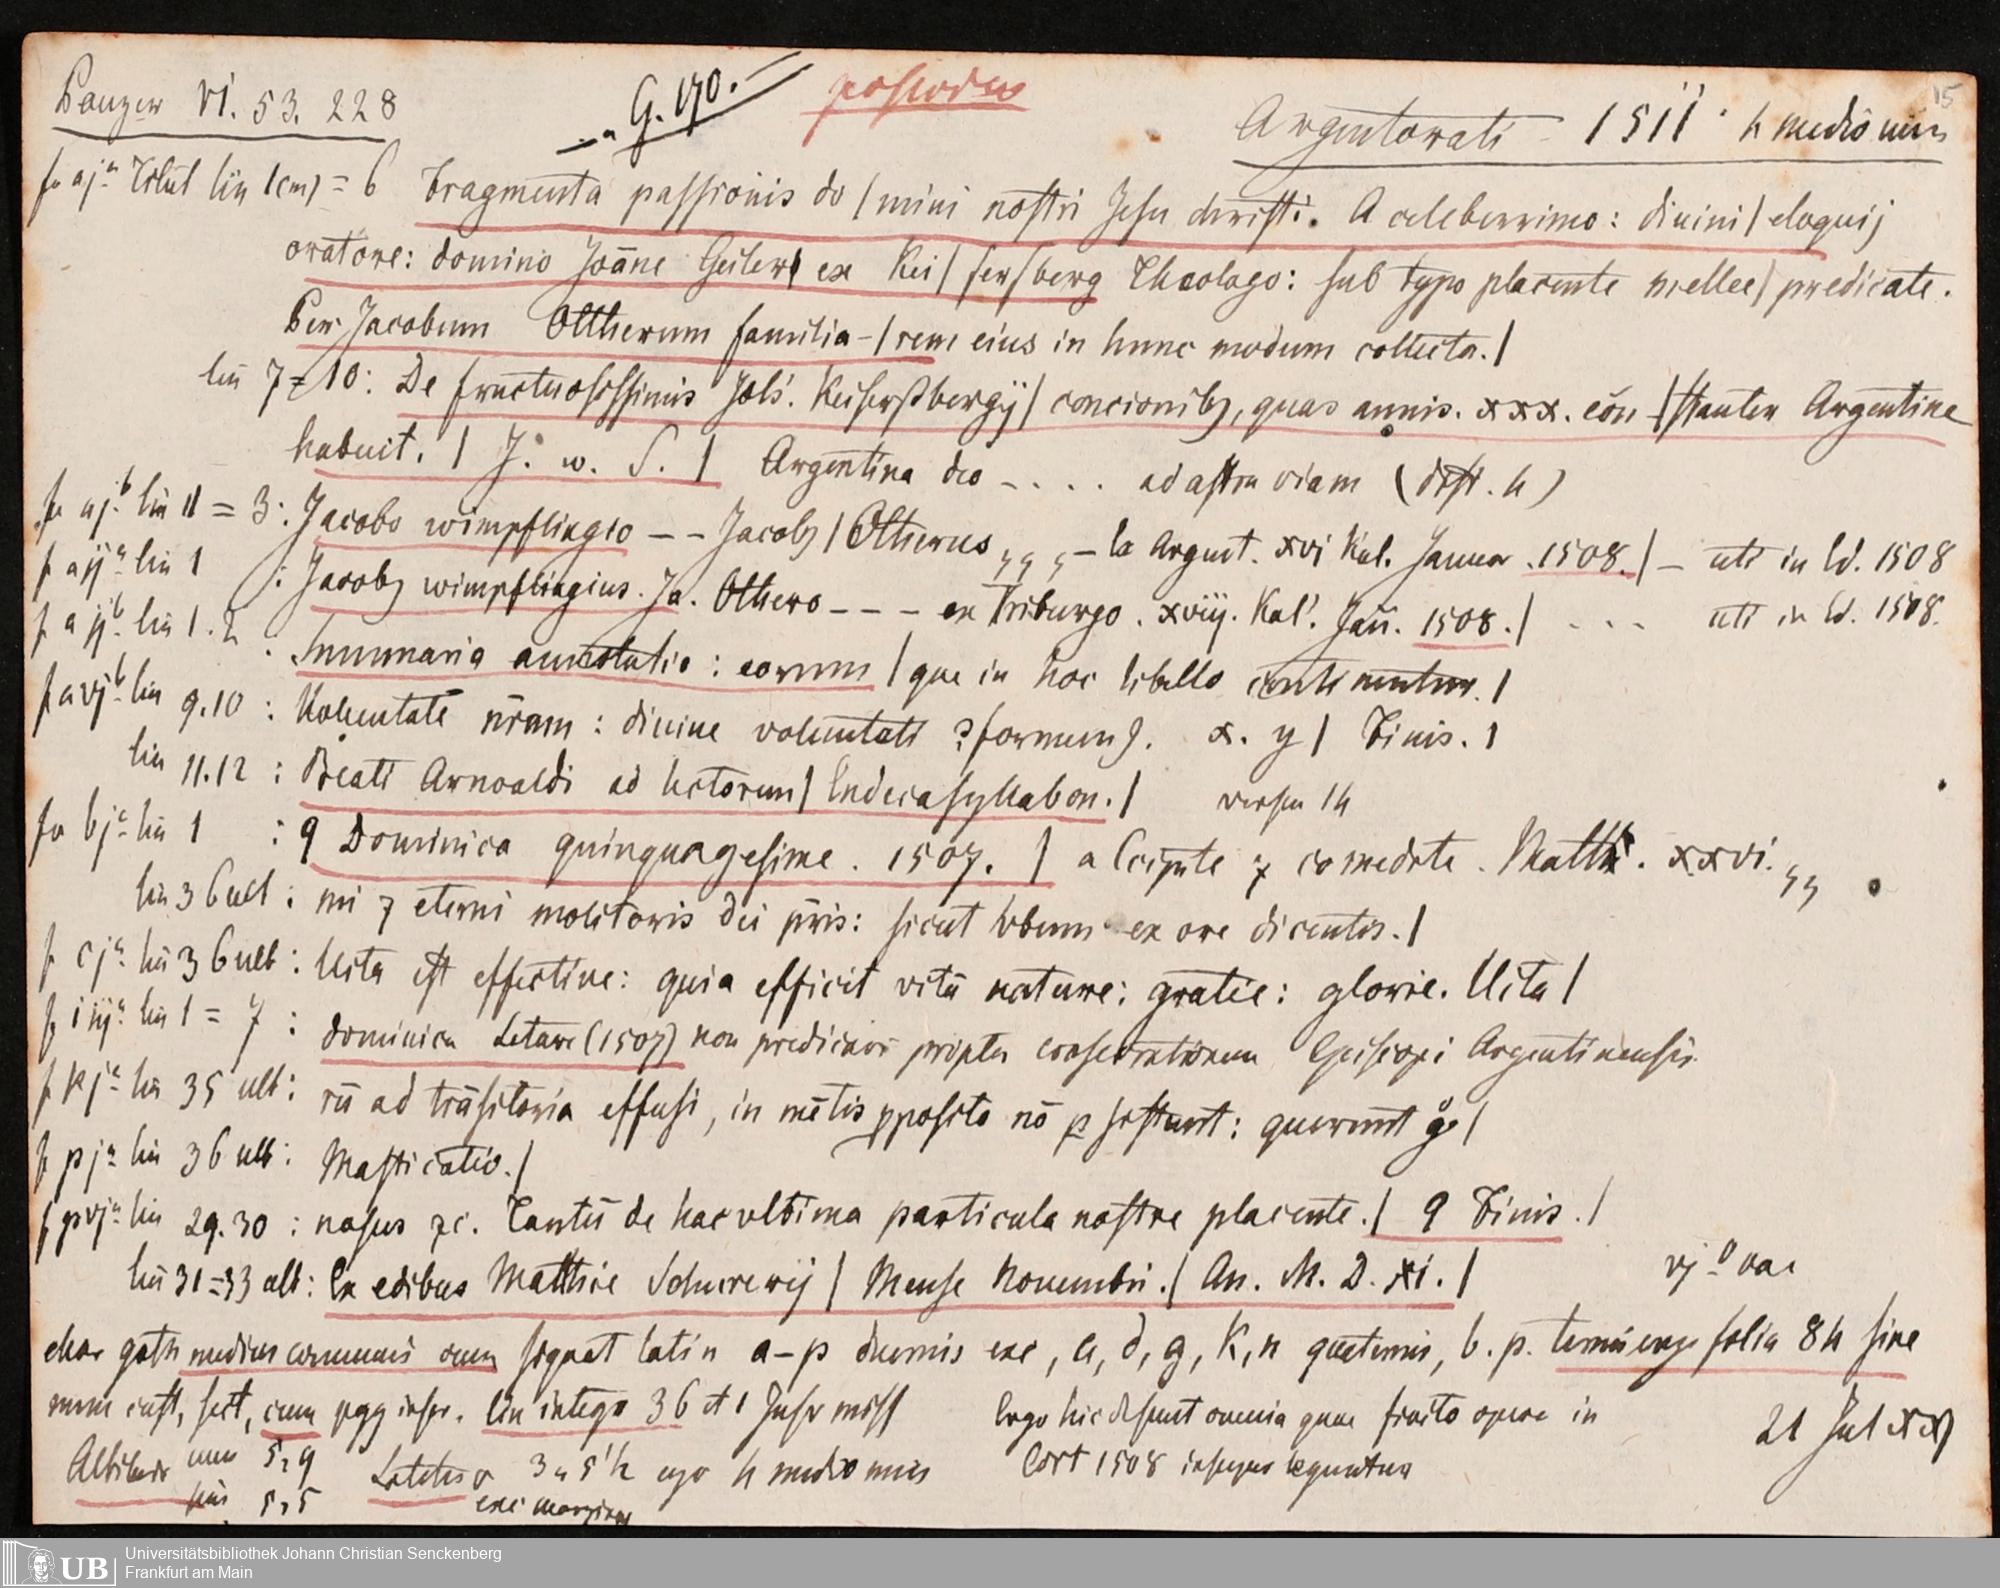 Panzer VI. 53. 228
G. 170.
15
Argentorati 1511 4 medio min
fo aja Titul lin 1(m) = 6 Fragmenta passionis do | mini nostri Jesu christi. A celeberrimo: diuini | eloquij
oratore: domino Joāne Geiler | ex Kei | sersberg Theologo: sub typo placente mellee | predicate.
Per Jacobum Ottherum familia- | rem eius in hunc modum collecta. |
lin 7=10: De fructuosissimis Johs. Keiserßbergij | concionibʒ, quas annis. xxx. cōn | stanter Argentine
habuit. | J. w. S. | Argentina deo - . . . ad astra viam (dist. 4)
fo ajb lin 1 = 3: Jacobo wimpflingio - - Jacobʒ | Ottherus - Ex Argent. xvi Kal. Januar. 1508. | - uti in Ed. 1508
f aija lin 1 : Jacobʒ wimpflingius. Ja. Othero - - - ex Friburgo. xviij. Kal'. Jañ. 1508. | . . . uti in Ed. 1508.
f aijb lin 1. 2 : Summaria annotatio: eorum | que in hoc libello continentur. |
f avjb lin 9.10 : Voluntatē nr̄am: diuine voluntati ɔformem9. x. y | Finis. |
lin 11.12 : Beati Arnoaldi ad lectorem | Endecasyllabon. | versus 14
fo bja lin 1 : ¶ Dominica quinquagesime. 1507. | accipite ⁊ comedite. Matth. xxvi.
lin 36 ult : mi ⁊ eterni molitoris dei pr̄is: sicut verbum ex ore dicentis. |
f cja lin 36 ult : Uita est effectiue: quia efficit vitā nature: gratie: glorie. Uita |
f iiija lin 1 = 7 : dominica Letare (1507) non predicaui propter consecrationem Episcopi Argentinensis.
f kja lin 35 ult : rū ad trāsitoria effusi, in mētis pposito nō psistunt: querunt g° |
f pja lin 36 ult : Masticatio. |
f pvja lin 29.30 : nasus ⁊c. Tantū de hac vltima particula nostre placente. | ¶ Finis. |
lin 31=33 ult : Ex edibus Matthie Schurerij | Mense Nouembri. | An. M. D. XI. | vjb vac
char goth medius communis signat latin a-p duernis exc, a, d, g, k, n quaternis, b. p. ternis ergo folia 84 sine
num cust, sect, cum pgg inscr. lin integra 36 et 1 Inscr miss Ergo hic desunt omnia quae finito opere in 21 Jul XV
Altitudo cum 5,9 Latitudo 3 a 5'''h ergo 4 medio min Edit 1508 insuper leguntur
sine 5,5 exc margines